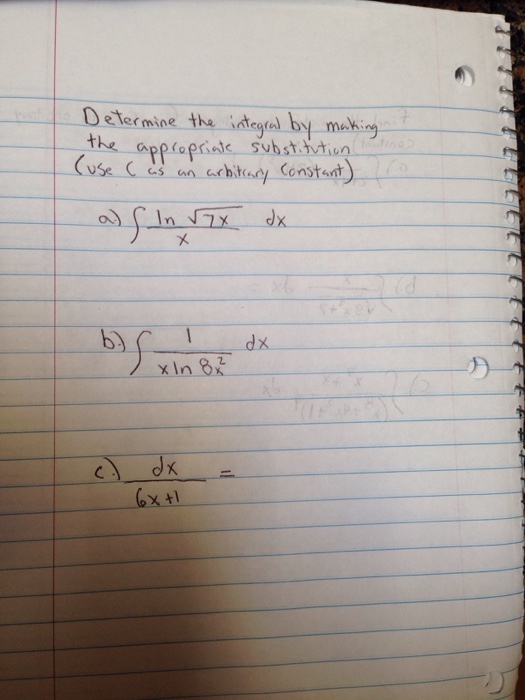 Determine the integral by making
the appropriate substitution
(use C as an arbitrary constant)
a) ∫ ln √7x / x dx
b.) ∫ 1 / x ln 8x² dx
c.) dx / 6x+1 =